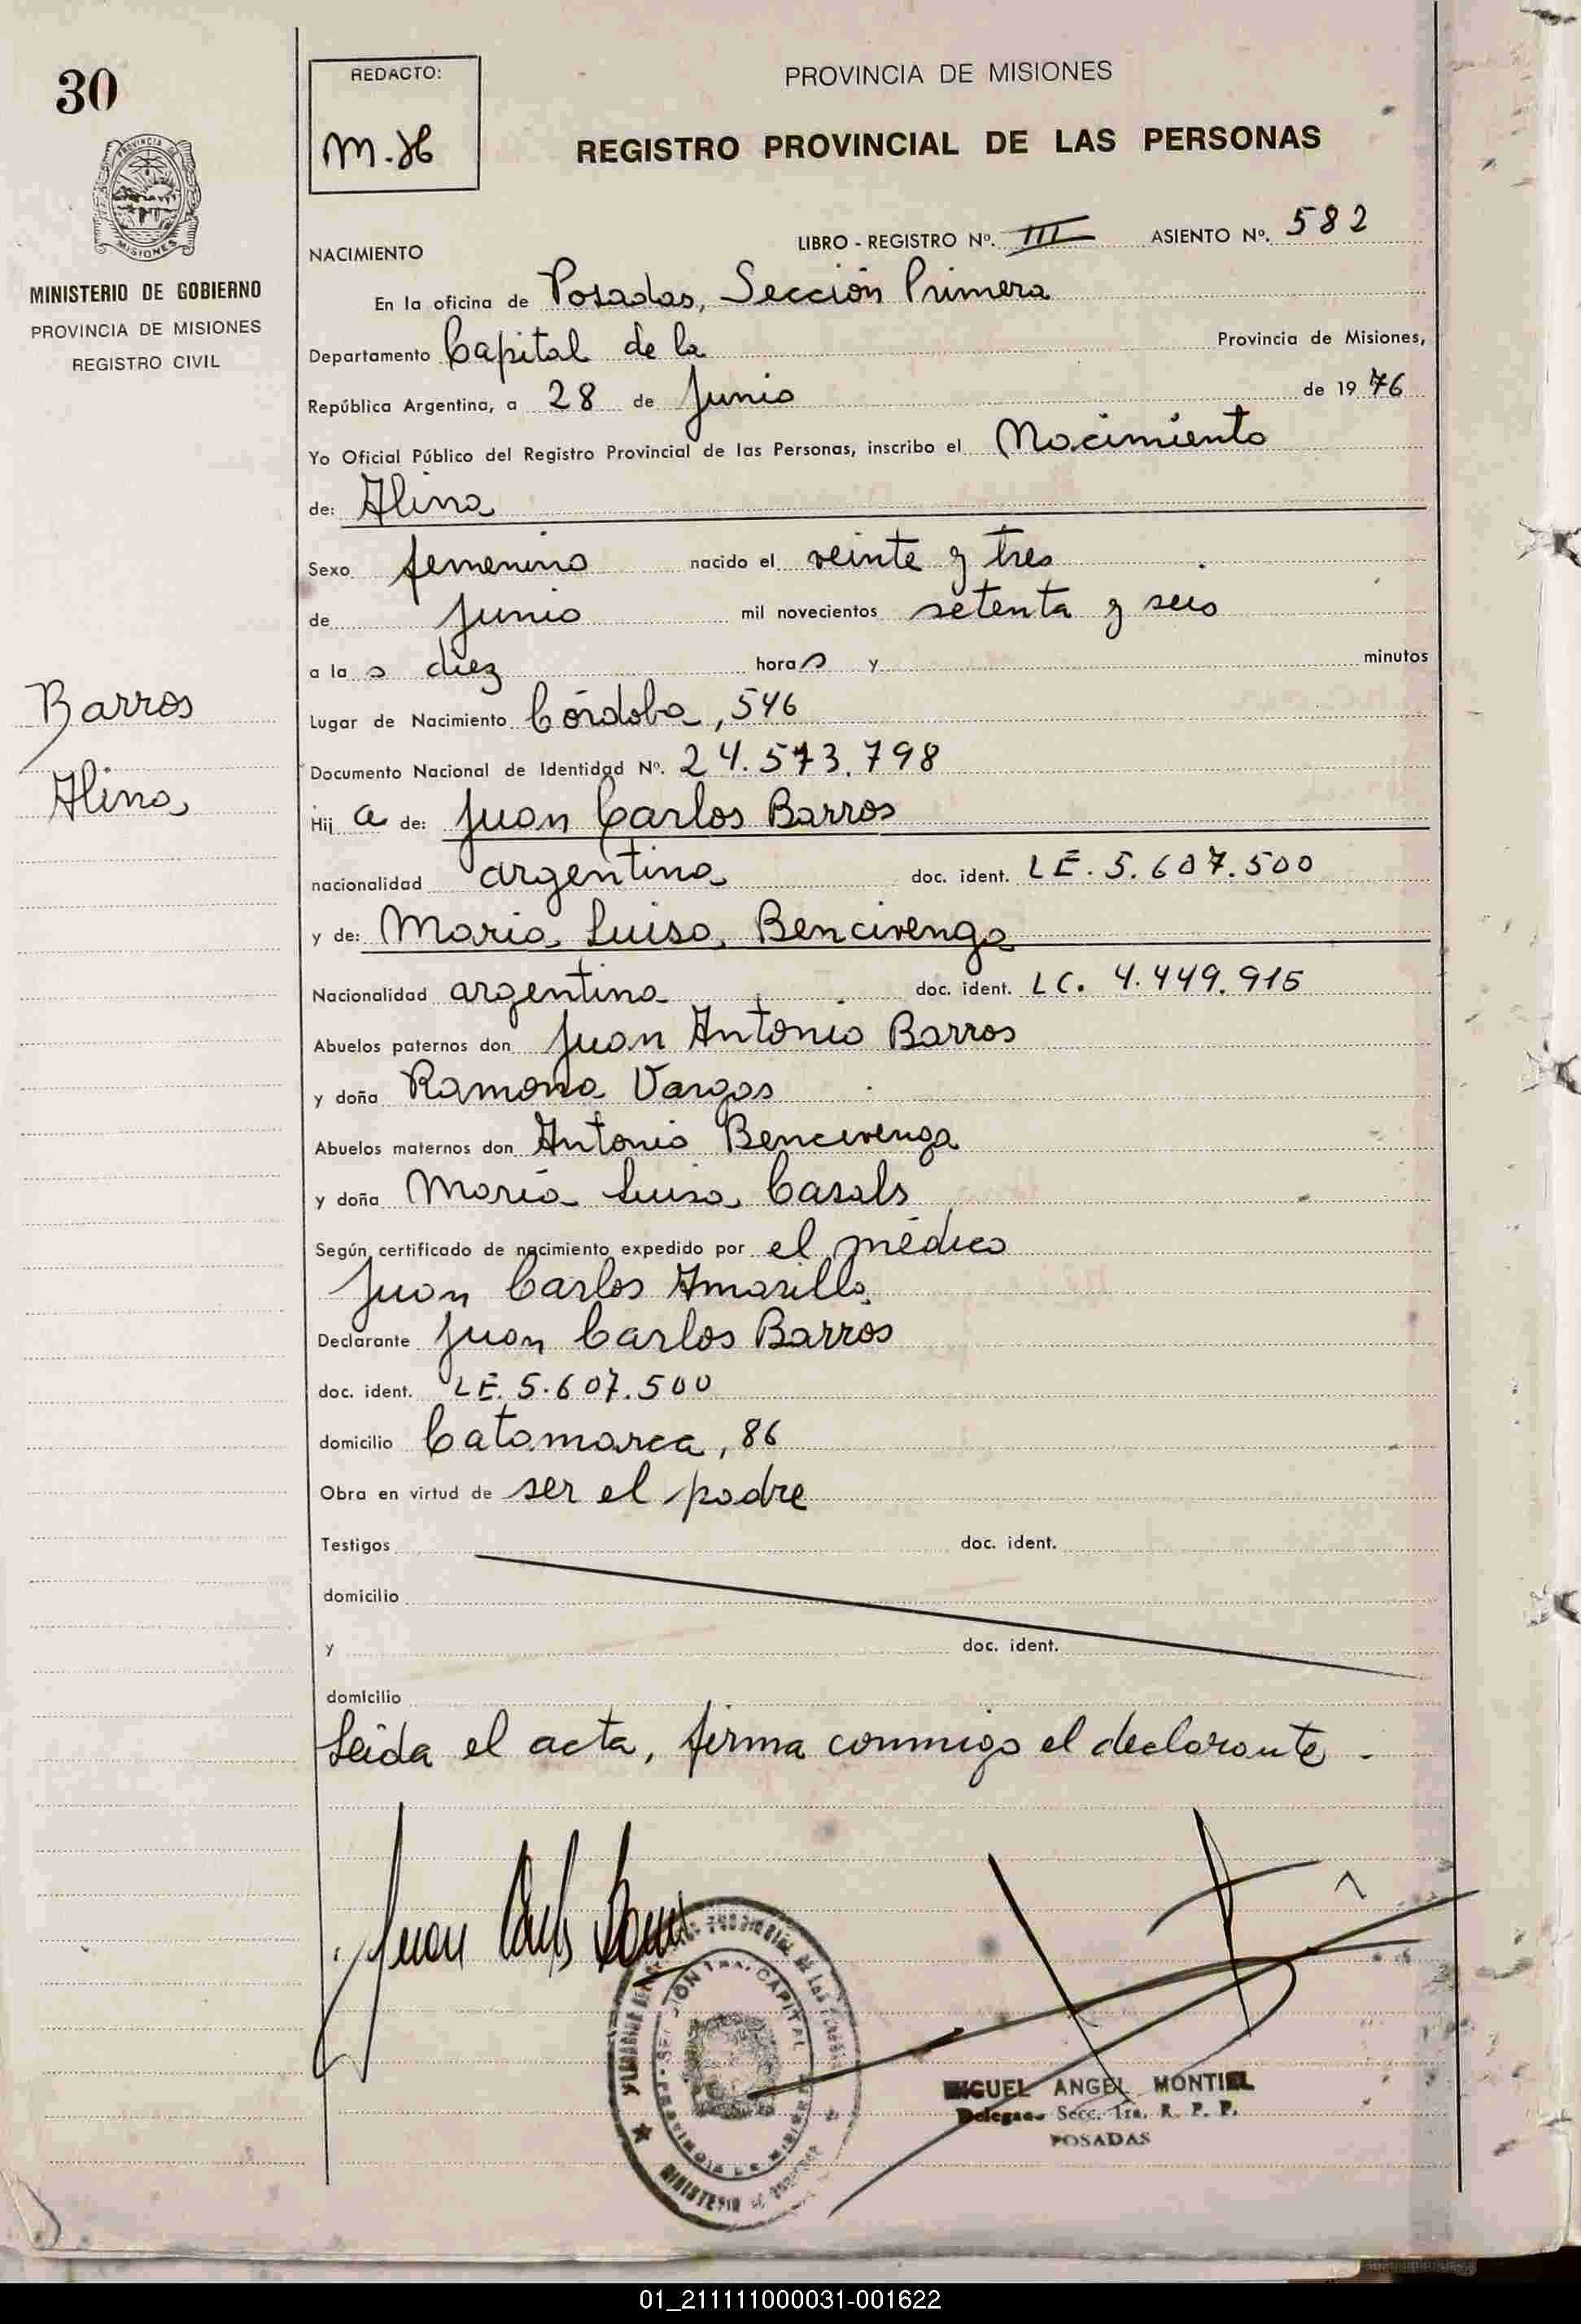 30
REDACTO:
M.H
PROVINCIA DE MISIONES
REGISTRO PROVINCIAL DE LAS PERSONAS
PROVINCIA
MISIONES
MINISTERIO DE GOBIERNO
PROVINCIA DE MISIONES
REGISTRO CIVIL
Barros
Alina
NACIMIENTO
LIBRO - REGISTRO Nº. III ASIENTO Nº. 582
En la oficina de Posadas, Sección Primera
Departamento Capital de la Provincia de Misiones,
República Argentina, a 28 de Junio de 1976
Yo Oficial Público del Registro Provincial de las Personas, inscribo el Nacimiento
de: Alina
Sexo femenino nacido el veinte y tres
de Junio mil novecientos setenta y seis
a la s diez horas y minutos
Lugar de Nacimiento Córdoba, 546
Documento Nacional de Identidad Nº. 24.573.798
Hij a de: Juan Carlos Barros
nacionalidad argentina doc. ident. LE. 5.607.500
y de: Maria Luisa Bencivenga
Nacionalidad argentina doc. ident. LC. 4.449.915
Abuelos paternos don Juan Antonio Barros
y doña Ramona Vargas
Abuelos maternos don Antonio Bencivenga
y doña María Luisa Casals
Según certificado de nacimiento expedido por el médico
Juan Carlos Amarilla
Declarante Juan Carlos Barros
doc. ident. LE. 5.607.500
domicilio Catamarca, 86
Obra en virtud de ser el padre
Testigos doc. ident.
domicilio
y doc. ident.
domicilio
Leida el acta, firma conmigo el declarante.
Juan Carlos Barros
PROVINCIAL DE LAS
1ra. CAPITAL
PROVINCIA DE MISIONES
MINISTERIO DE GOBIERNO
MIGUEL ANGEL MONTIEL
Delegado Secc. 1ra. R. P. P.
POSADAS
01_211111000031-001622